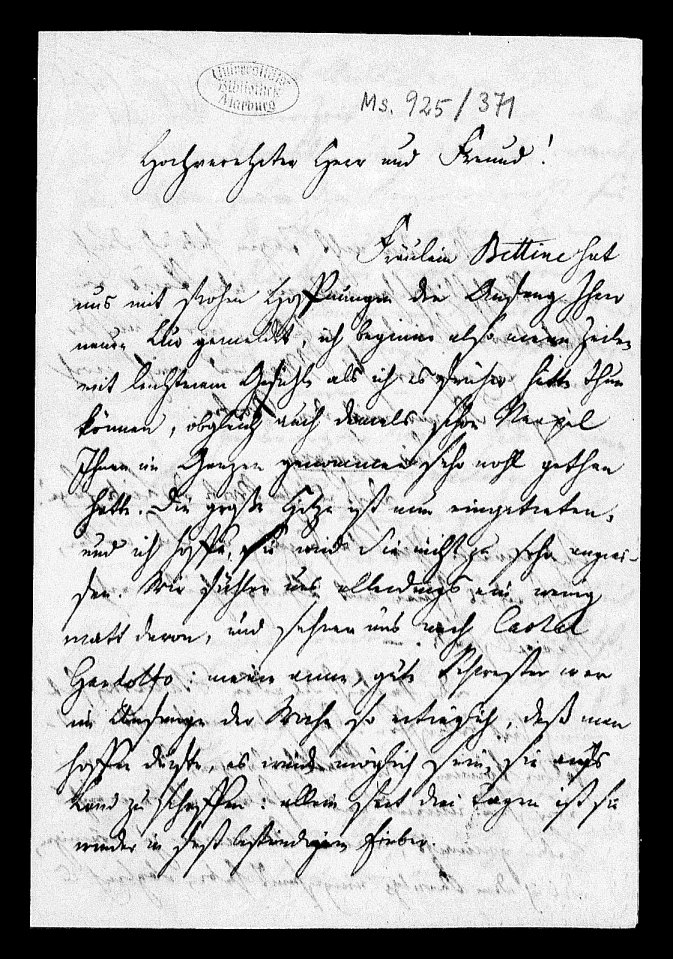 Universitäts
Bibliothek
Marburg
Ms. 925/371
Hochverehrter Herr und Freund!
Fräulein Bettine hat
uns mit frohen Hoffnungen den Anfang Ihrer
neuen Kur gemeldet, ich beginne also meine Zeilen
mit leichterem Gefühle als ich es früher hätte thun
können, obgleich auch damals schon Neapel
Ihnen im Ganzen genommen sehr wohl gethan
hatte. Die große Hitze ist nun eingetreten,
und ich hoffe, sie wird Sie nicht zu sehr angrei-
fen. Wir fühlen uns allerdings ein wenig
matt davon, und sehnen uns nach Castel
Gandolfo: meine arme, gute Schwester war
im Anfange der Woche so erträglich, daß man
hoffen durfte, es würde möglich sein, sie aufs
Land zu schaffen: allein seit drei Tagen ist sie
wieder in fast beständigem Fieber